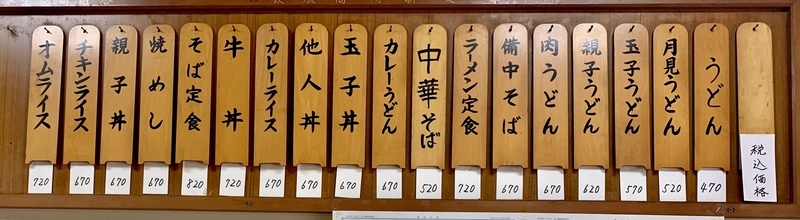 税込価格
うどん 470
月見うどん 520
玉子うどん 570
親子うどん 620
肉うどん 670
備中そば 670
ラーメン定食 720
中華そば 520
カレーうどん 670
玉子丼 670
他人丼 670
カレーライス 670
牛丼 720
そば定食 820
焼めし 670
親子丼 670
チキンライス 670
オムライス 720